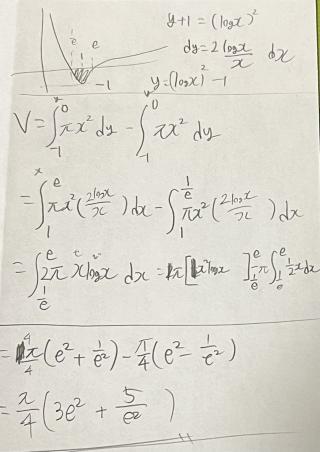 y+1 = (logx)²
dy = 2 logx/x dx
y = (logx)² - 1
1/e 1 e
-1
V = ∫_{-1}^{0} πx² dy - ∫_{-1}^{0} πx² dy
= ∫_{1}^{e} πx² (2logx/x) dx - ∫_{1}^{1/e} πx² (2logx/x) dx
= ∫_{1/e}^{e} 2π x logx dx = π[x² logx]_{1/e}^{e} - π∫_{1/e}^{e} 1/2 x dx
= 4π/4 (e² + 1/e²) - π/4 (e² - 1/e²)
= π/4 (3e² + 5/e²)